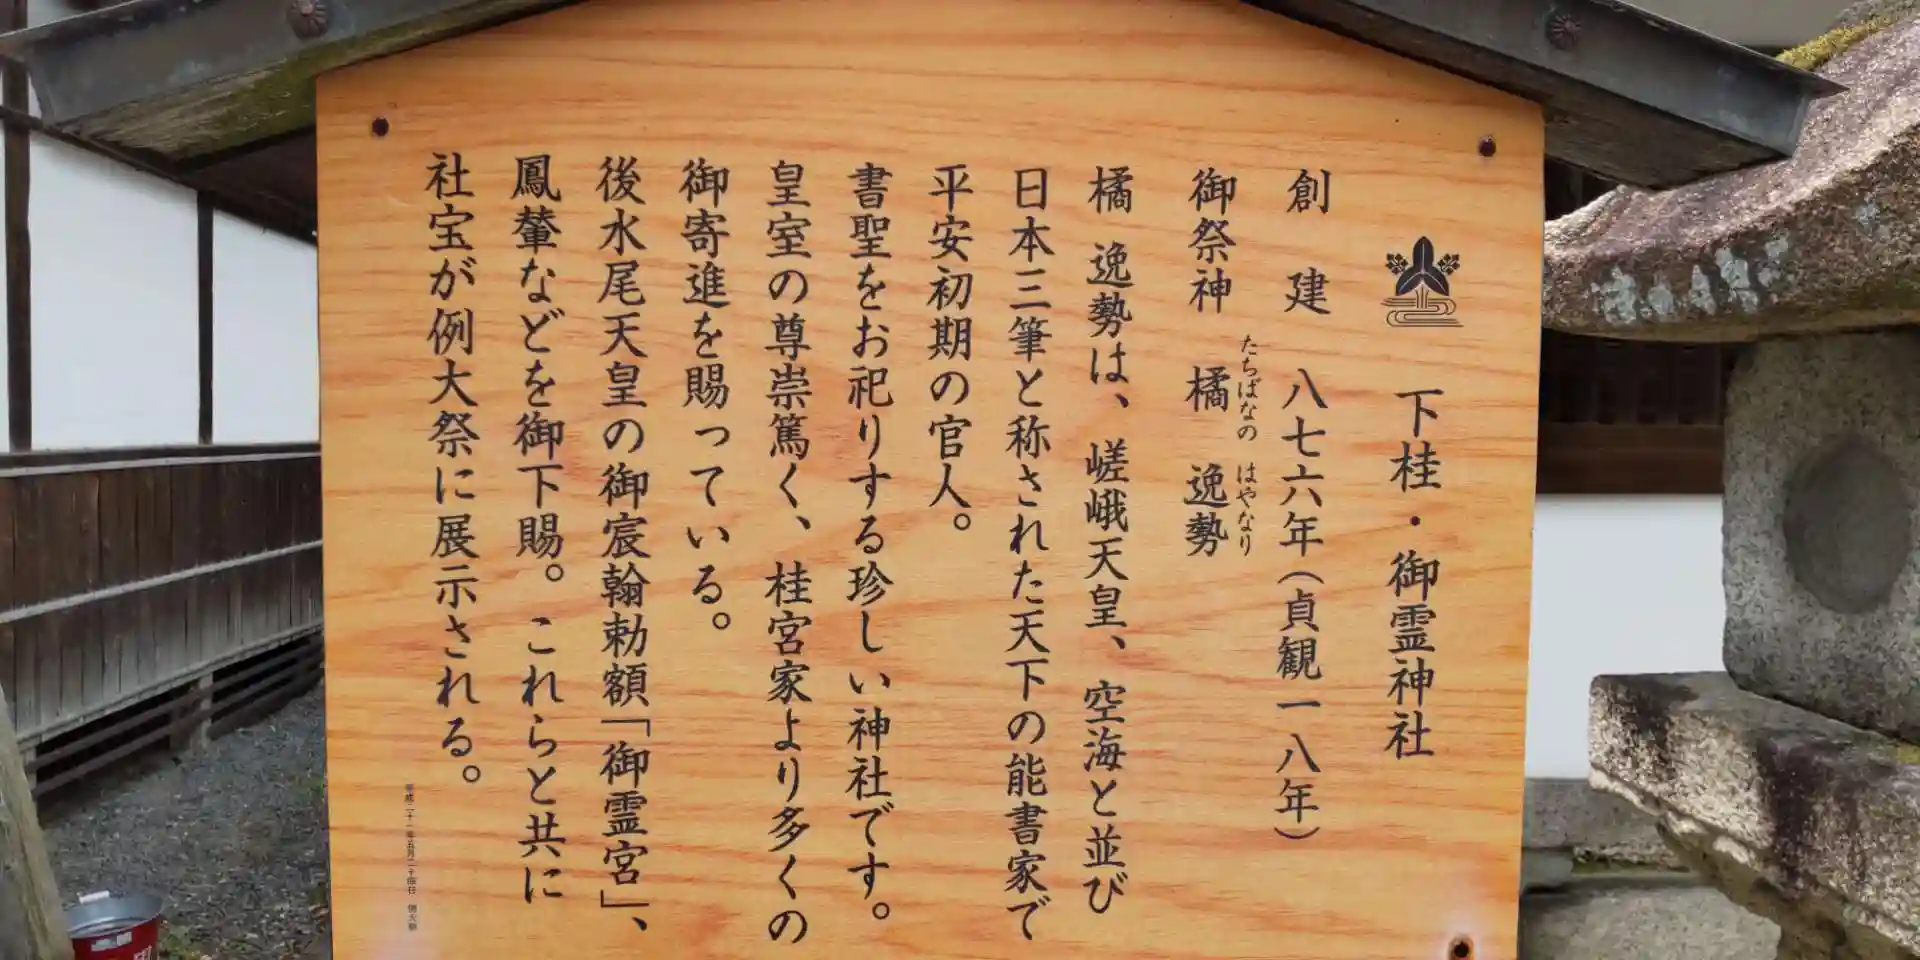 下桂・御霊神社
創建 八七六年（貞観一八年）
御祭神 橘 逸勢
たちばなの はやなり
橘 逸勢は、嵯峨天皇、空海と並び
日本三筆と称された天下の能書家で
平安初期の官人。
書聖をお祀りする珍しい神社です。
皇室の尊崇篤く、桂宮家より多くの
御寄進を賜っている。
後水尾天皇の御宸翰勅額「御霊宮」、
鳳輦などを御下賜。これらと共に
社宝が例大祭に展示される。